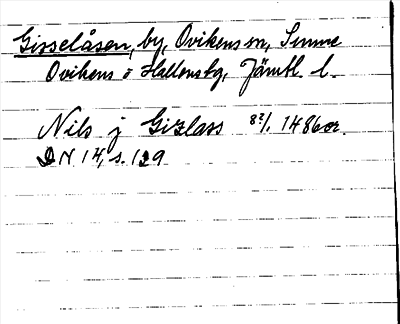 Gisselåsen, by, Ovikens sn, Sunne
Ovikens o Hallens tg, Jämtl. l.
Nils j Gislass 8?/1. 1486 or.
DN 14, s. 129